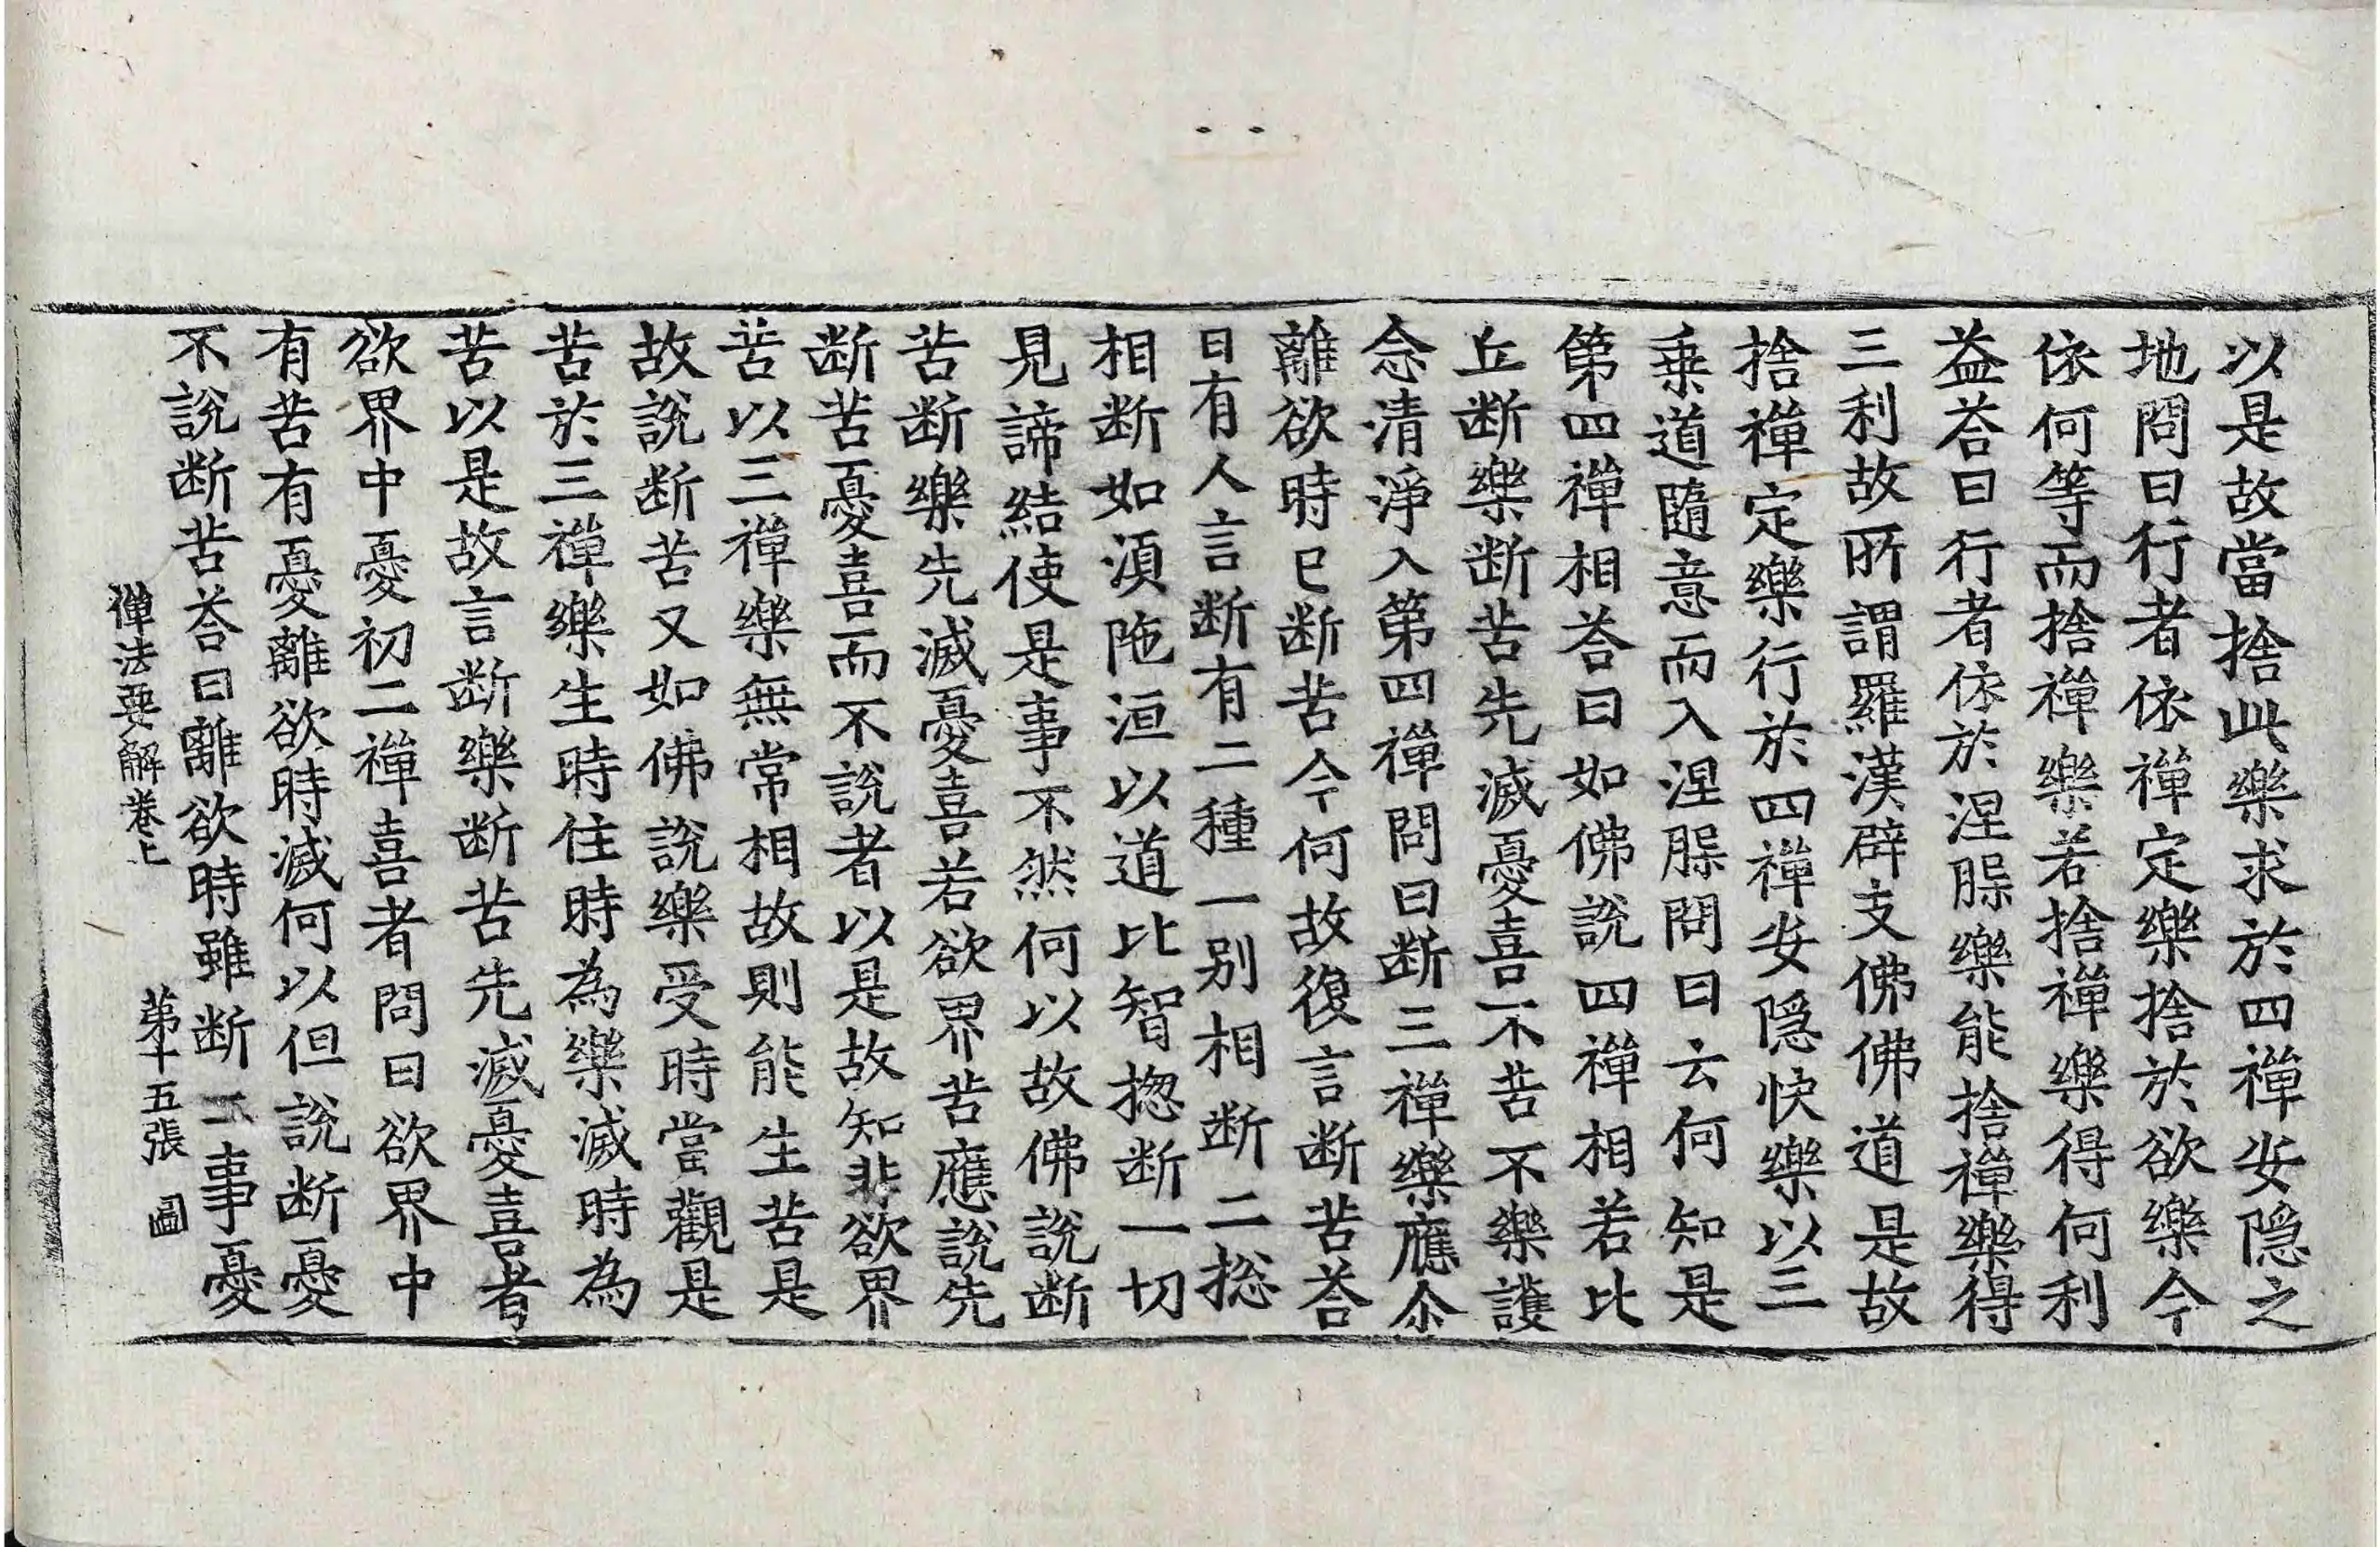 以是故當捨此樂求於四禪安隱之
地問曰行者依禪定樂捨於欲樂今
依何等而捨禪樂若捨禪樂得何利
益荅曰行者依於涅槃樂能捨禪樂得
三利故所謂羅漢辟支佛佛道是故
捨禪定樂行於四禪安隱快樂以三
乗道隨意而入涅槃問曰云何知是
第四禪相荅曰如佛說四禪相若比
丘断樂断苦先滅憂喜不苦不樂護
念清淨入第四禪問曰断三禪樂應尒
離欲時已断苦今何故復言断苦荅
曰有人言断有二種一別相断二捴
相断如湏陁洹以道比智捴断一切
見諦結使是事不然何以故佛說断
苦断樂先滅憂喜若欲界苦應說先
断苦憂喜而不說者以是故知非欲界
苦以三禪樂無常相故則能生苦是
故說断苦又如佛說樂受時當觀是
苦於三禪樂生時住時為樂滅時為
苦以是故言断樂断苦先滅憂喜者
欲界中憂初二禪喜者問曰欲界中
有苦有憂離欲時滅何以但說断憂
不說断苦荅曰離欲時雖断二事憂
禪法要解卷上 第十五張 圖